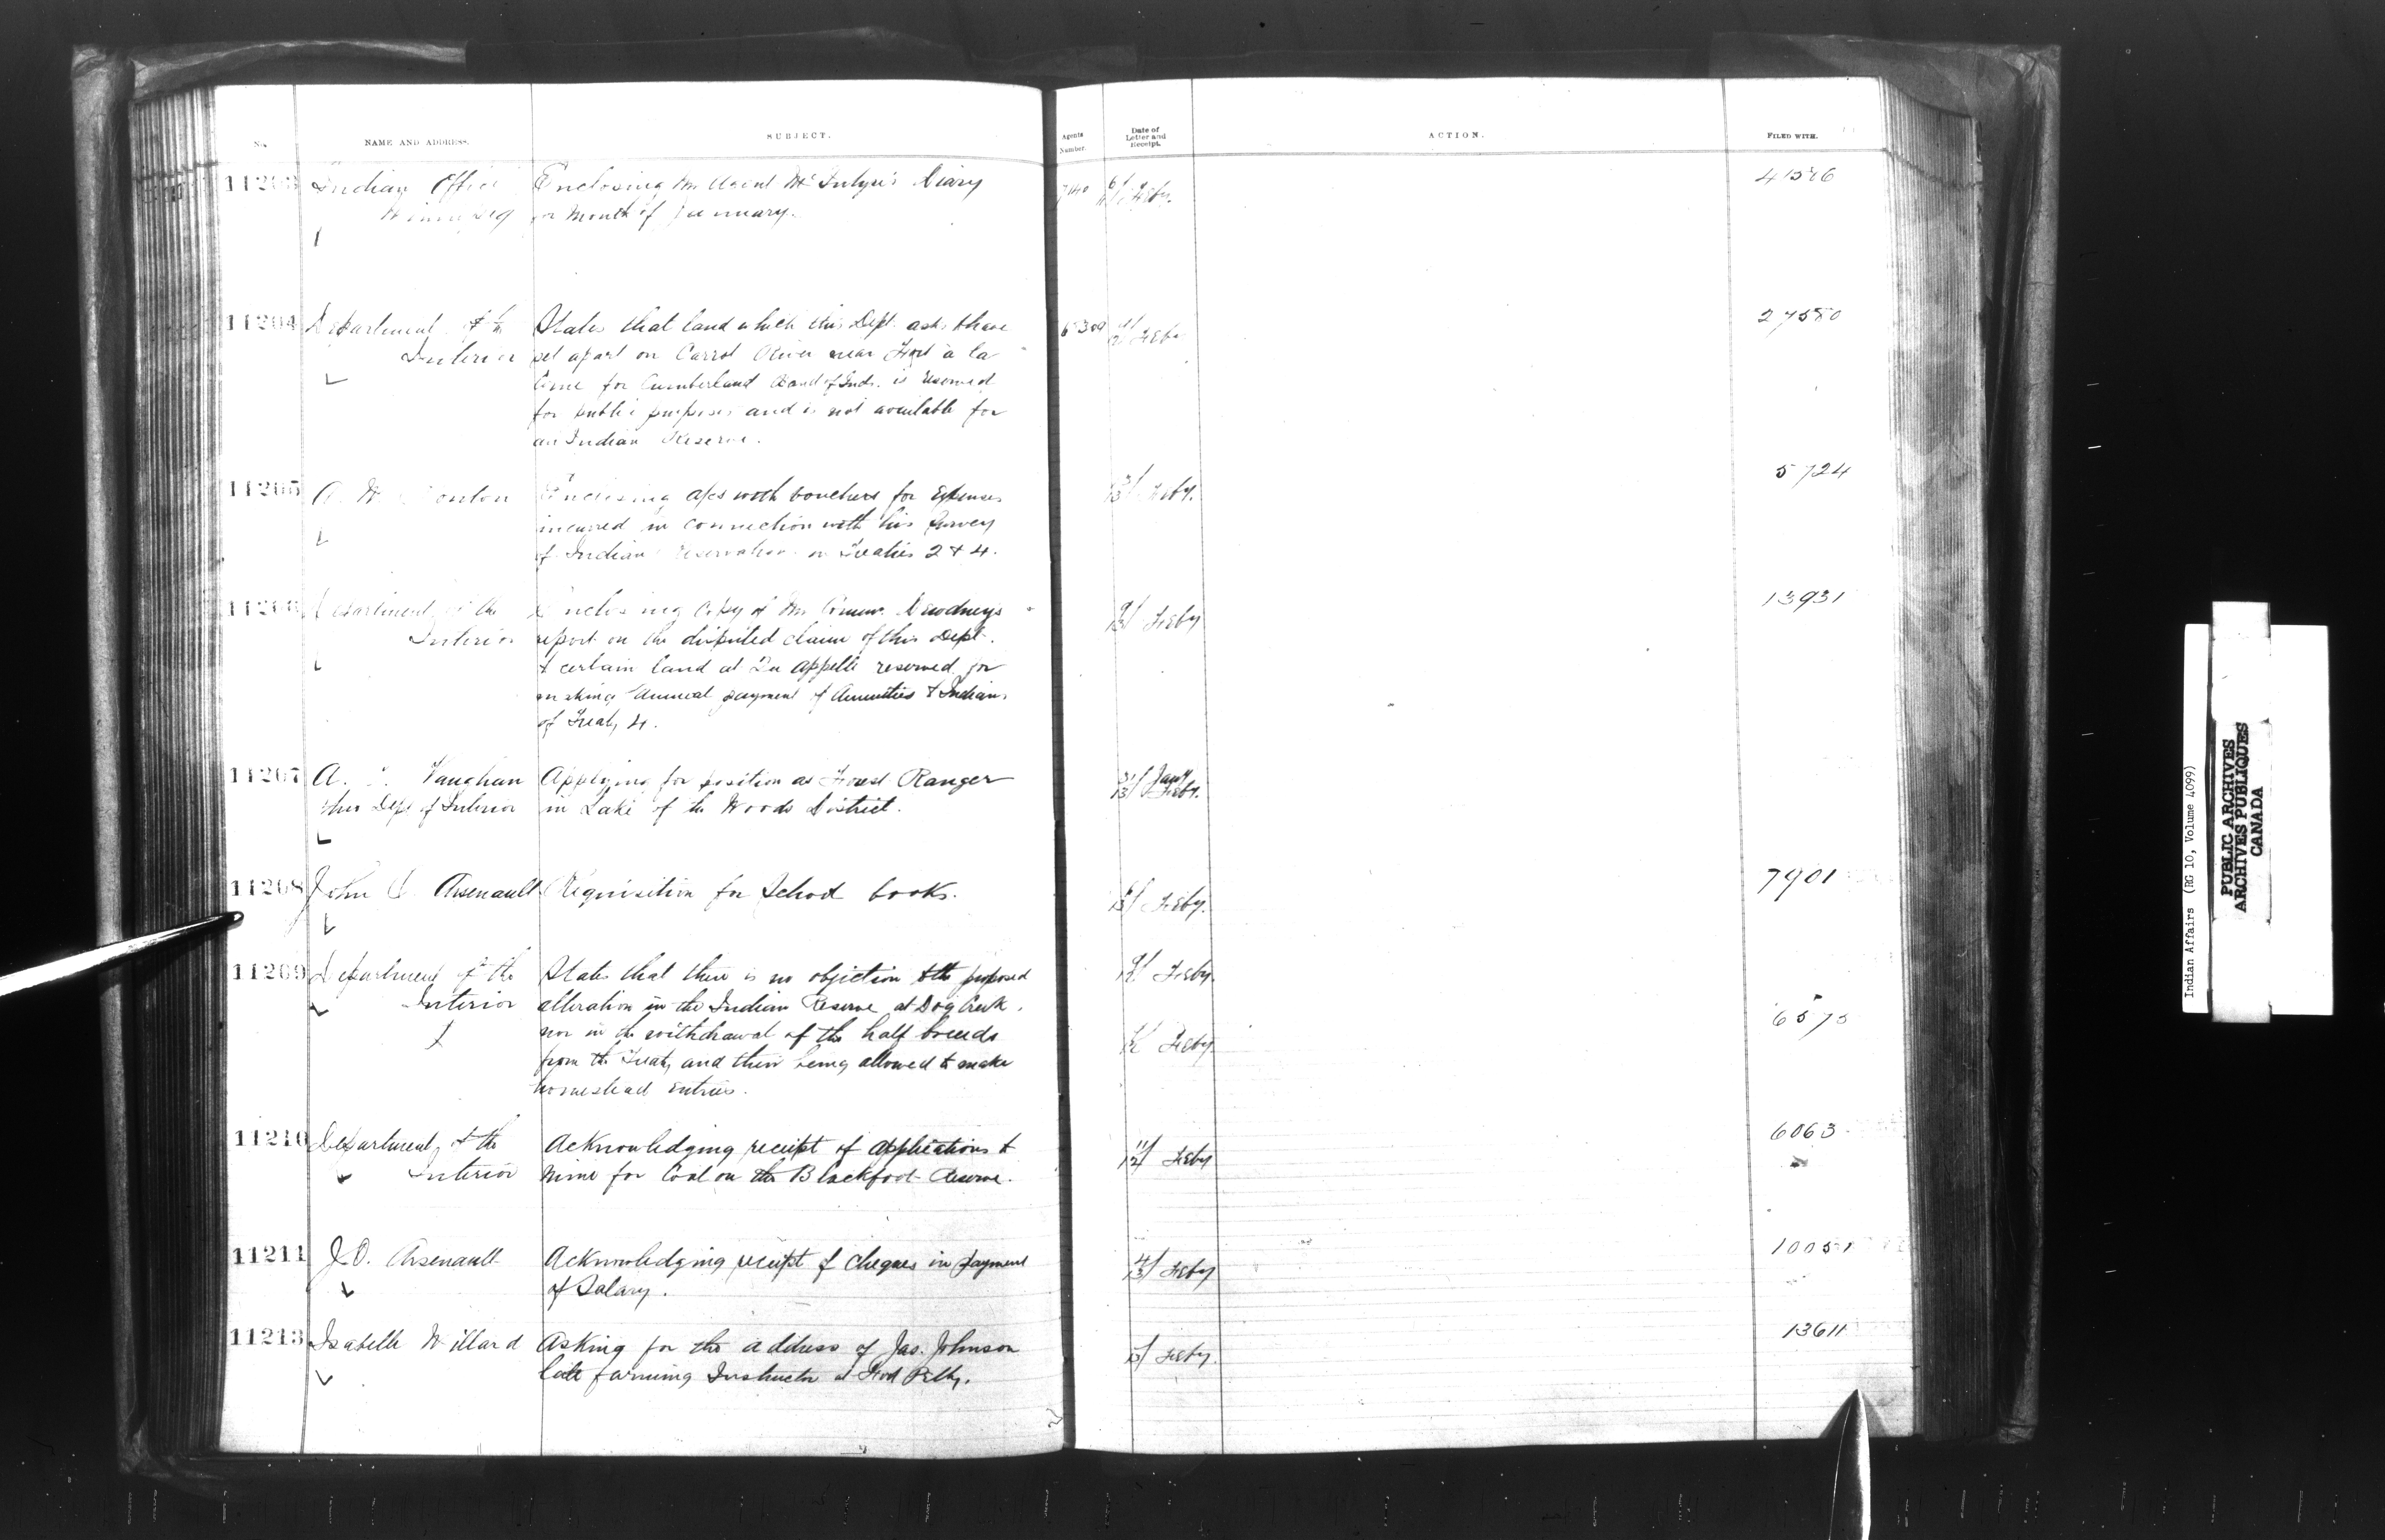 No. NAME AND ADDRESS. SUBJECT. Agents Number. Date of Letter and Receipt. ACTION. FILED WITH.
11203 Indian Office Enclosing Mr Agent Diary Feby.
Winnipeg for Month of January.
11204 Department of the States that land which this Dept. asks to have Feby 27550
Interior set apart on Carrot River near Fort à la
Corne for Cumberland Band of Inds. is reserved
for public purposes and is not available for
an Indian Reserve.
11205 A. W. Ponton Enclosing a/cs with vouchers for Expenses Feby. 5724
incurred in connection with his Survey
of Indian reservations in Treaties 2 & 4.
11206 Department of the Enclosing Copy of Mr Comr. Dewdneys 9/13 Feby 13931
Interior report on the disputed claim of this Dept.
to certain land at Qu Appelle reserved for
making Annual payment of Annuities to Indians
of Treaty 4.
11207 A. Vaughan Applying for position as Forest Ranger 31/13 Jany Feby.
thro Dept of Interior in Lake of the Woods District.
11208 John O. Arsenault Requisition for School books. Feby. 7901
11209 Department of the States that there is no objection to the proposed Feby.
Interior alteration in the Indian Reserve at Dog Creek,
nor in the withdrawal of the half breeds Feby 6575
from the Treaty and their being allowed to make
homestead entries.
11210 Department of the Acknowledging receipt of applications to 11/12 Feby 6063
Interior Mine for Coal on the Blackfoot Reserve.
11211 J.O. Arsenault Acknowledging receipt of cheques in payment Feby 10051
of Salary.
11213 Isabelle Willard Asking for the address of Jas. Johnson Feby. 13611
late farming Instructor at Fort Pelly.
Indian Affairs (RG 10, Volume 4099)
PUBLIC ARCHIVES
ARCHIVES PUBLIQUES
CANADA